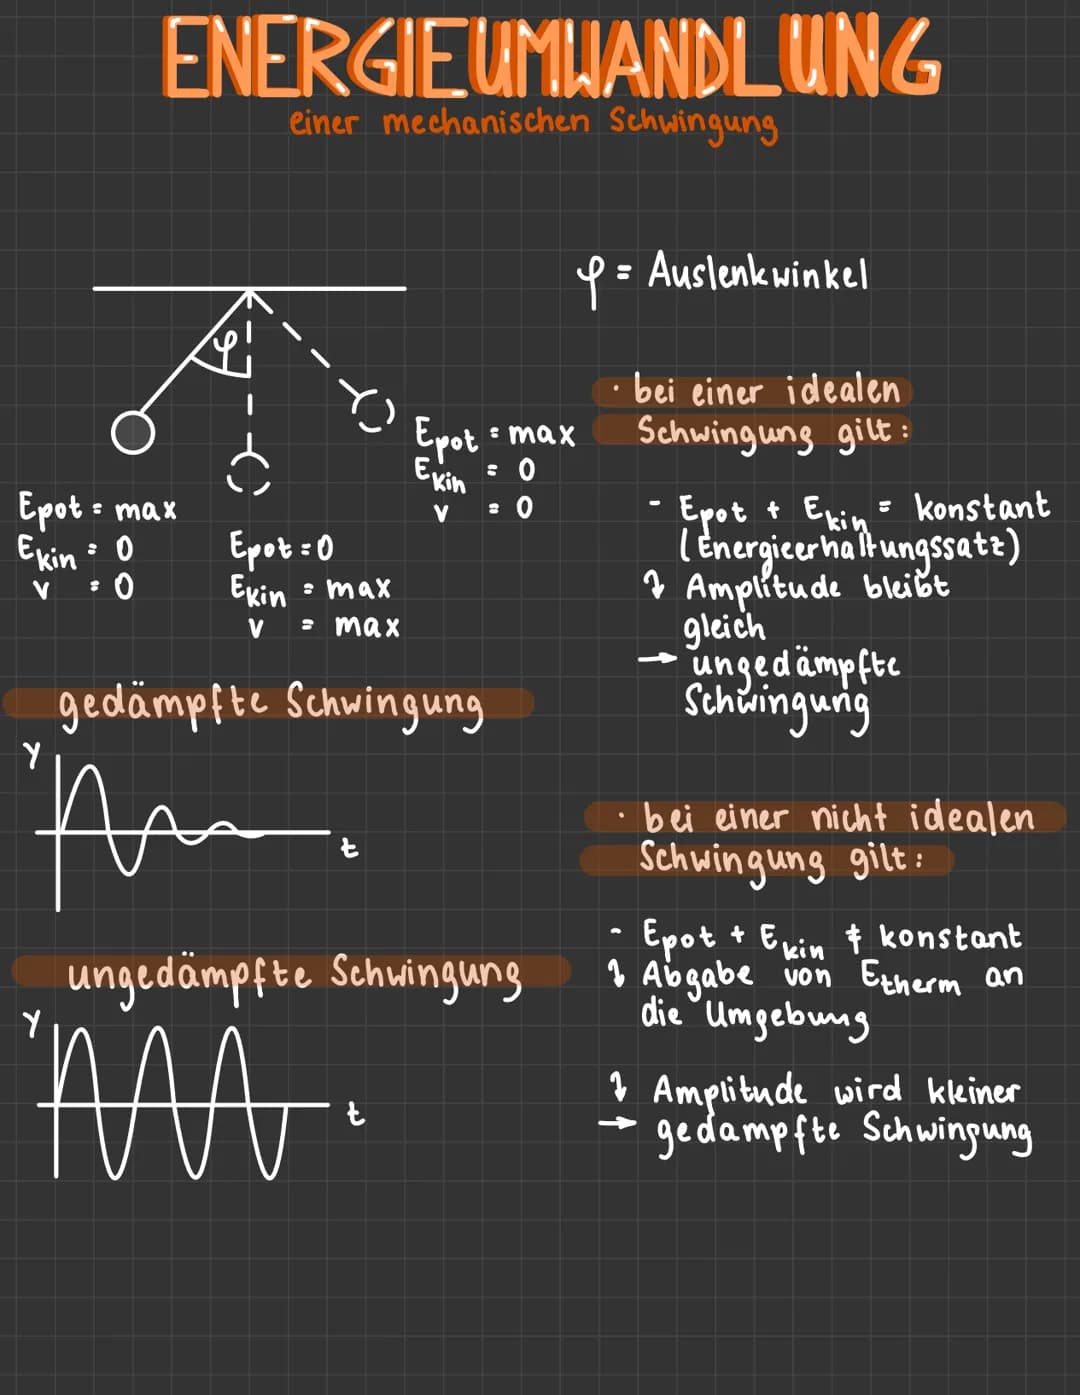 ENERGIEUMWANDLUNG
einer mechanischen Schwingung
φ = Auslenkwinkel
φ
Epot = max
Ekin = 0
v = 0
Epot = 0
Ekin = max
v = max
Epot = max
Ekin = 0
v = 0
· bei einer idealen
Schwingung gilt:
- Epot + Ekin = konstant
(Energieerhaltungssatz)
↴ Amplitude bleibt
gleich
→ ungedämpfte
Schwingung
gedämpfte Schwingung
y
t
ungedämpfte Schwingung
y
t
· bei einer nicht idealen
Schwingung gilt:
- Epot + Ekin ≠ konstant
↴ Abgabe von Etherm an
die Umgebung
↴ Amplitude wird kleiner
→ gedämpfte Schwingung